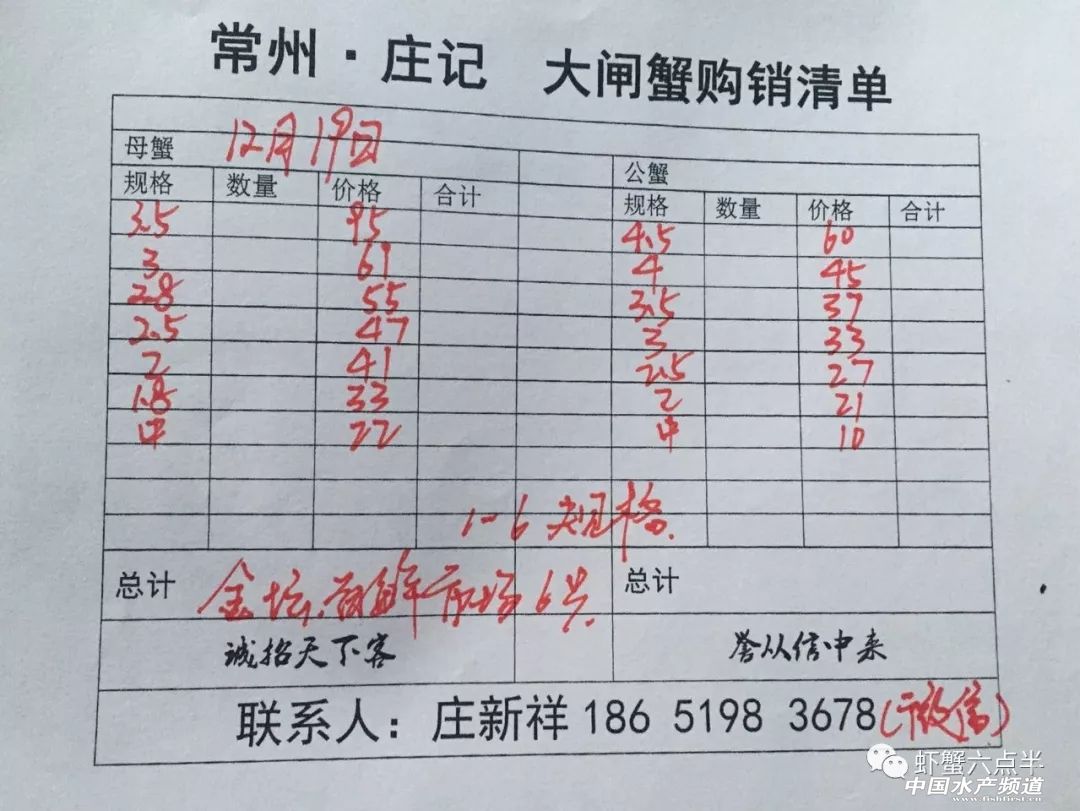 常州·庄记 大闸蟹购销清单
12月19日
母蟹 公蟹
规格 数量 价格 合计 规格 数量 价格 合计
3.5 95 4.5 60
3 61 4 45
2.8 55 3.5 37
2.5 47 3 33
2 41 2.5 27
1.8 33 2 21
中 22 中 10
1-6规格
总计 金坛 海鲜市场 6号 总计
诚招天下客 誉从信中来
联系人：庄新祥 186 5198 3678(微信)
虾蟹六点半
中国水产频道
www.fishfirst.cn